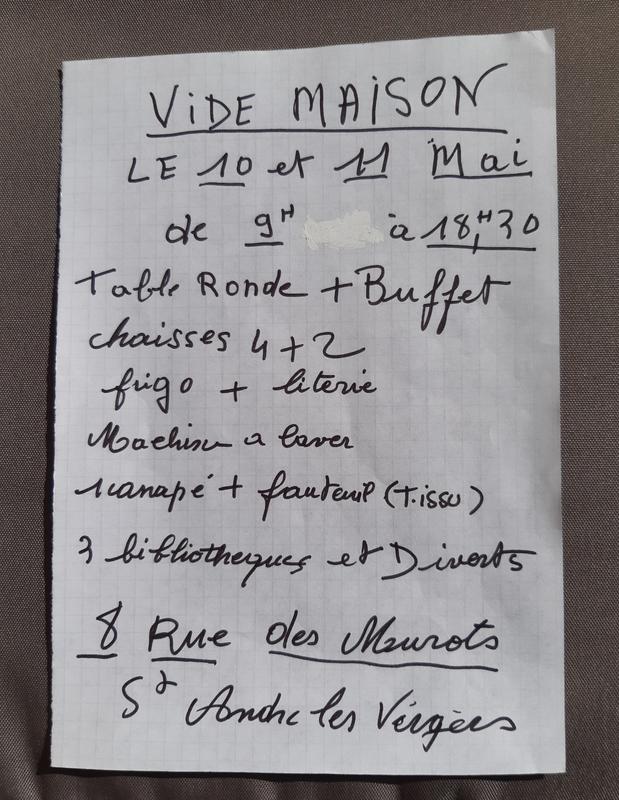 ViDE MAiSON
LE 10 et 11 Mai
de 9H à 18H30
Table Ronde + Buffet
chaisses 4 + 2
frigo + literie
Machine a laver
1 canapé + fauteuil (Tissu)
3 bibliotheques et Diverts
8 Rue des Maurots
St Andre les Vérgèrs